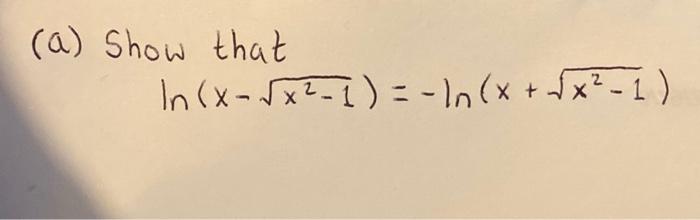 (a) Show that
ln(x-√x²-1) = -ln(x + √x²-1)